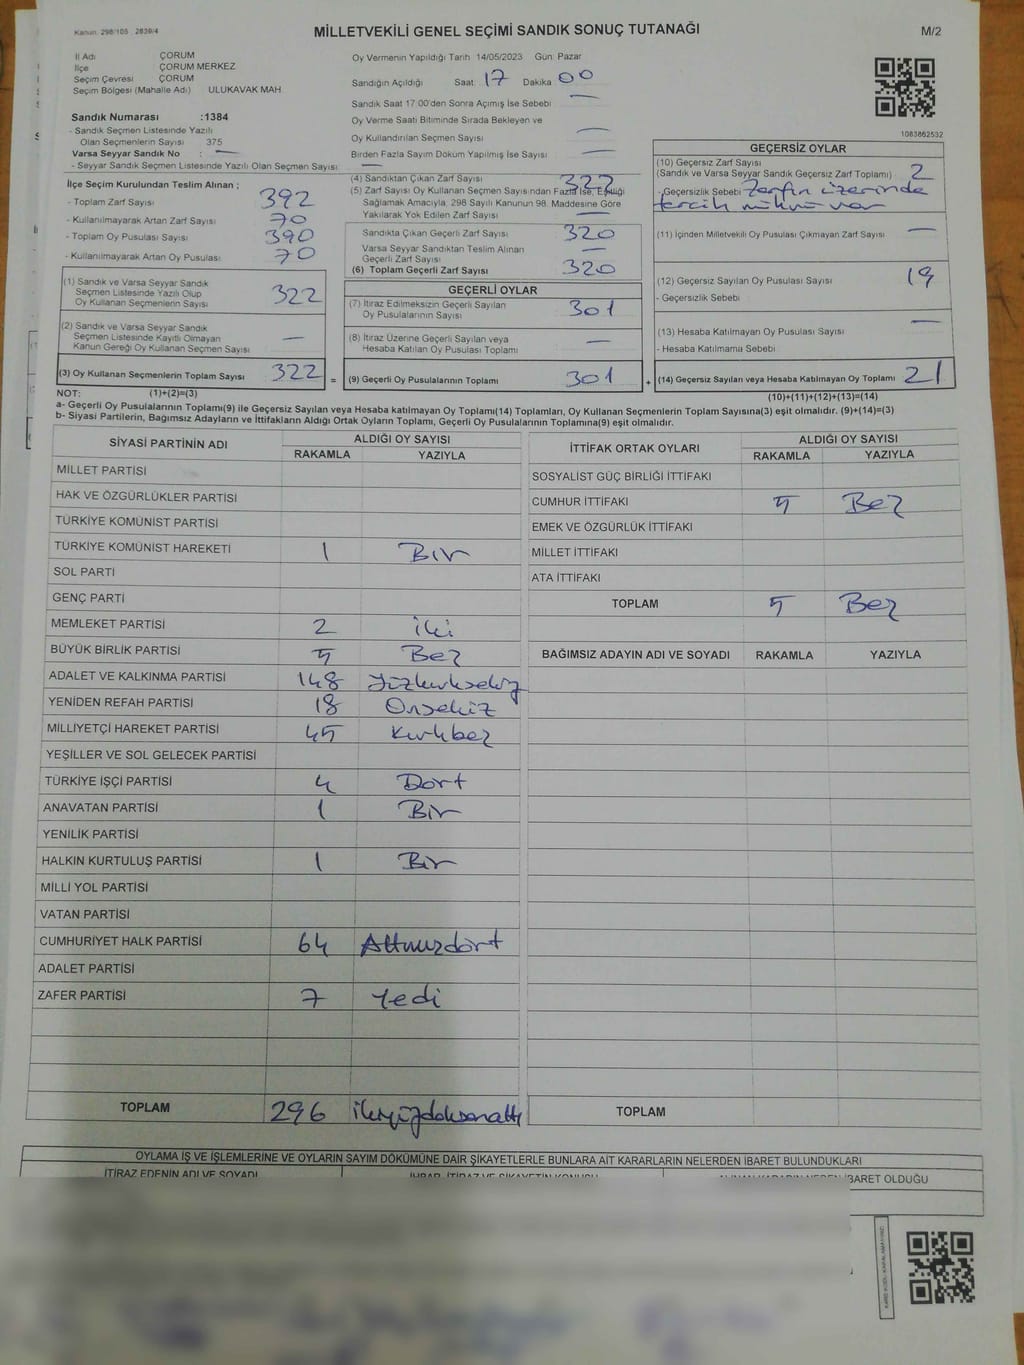 Kanun: 298/105 2839/4
MİLLETVEKİLİ GENEL SEÇİMİ SANDIK SONUÇ TUTANAĞI
M/2
İl Adı ÇORUM
İlçe ÇORUM MERKEZ
Seçim Çevresi ÇORUM
Seçim Bölgesi (Mahalle Adı) ULUKAVAK MAH
Oy Vermenin Yapıldığı Tarih 14/05/2023 Gün: Pazar
Sandığın Açıldığı Saat: 17 Dakika 00
Sandık Saat 17:00'den Sonra Açımış İse Sebebi —
Oy Verme Saati Bitiminde Sırada Bekleyen ve
Oy Kullandırılan Seçmen Sayısı —
Birden Fazla Sayım Döküm Yapılmış İse Sayısı —
1083862532
Sandık Numarası :1384
- Sandık Seçmen Listesinde Yazılı
Olan Seçmenlerin Sayısı 375
Varsa Seyyar Sandık No : —
- Seyyar Sandık Seçmen Listesinde Yazılı Olan Seçmen Sayısı: —
İlçe Seçim Kurulundan Teslim Alınan ;
- Toplam Zarf Sayısı 392
- Kullanılmayarak Artan Zarf Sayısı 70
- Toplam Oy Pusulası Sayısı 390
- Kullanılmayarak Artan Oy Pusulası 70
(1) Sandık ve Varsa Seyyar Sandık
Seçmen Listesinde Yazılı Olup
Oy Kullanan Seçmenlerin Sayısı 322
(2) Sandık ve Varsa Seyyar Sandık
Seçmen Listesinde Kayıtlı Olmayan
Kanun Gereği Oy Kullanan Seçmen Sayısı —
(3) Oy Kullanan Seçmenlerin Toplam Sayısı 322 =
(4) Sandıktan Çıkan Zarf Sayısı 322
(5) Zarf Sayısı Oy Kullanan Seçmen Sayısından Fazla İse, Eşitliği
Sağlamak Amacıyla, 298 Sayılı Kanunun 98. Maddesine Göre
Yakılarak Yok Edilen Zarf Sayısı —
Sandıkta Çıkan Geçerli Zarf Sayısı 320
Varsa Seyyar Sandıktan Teslim Alınan
Geçerli Zarf Sayısı —
(6) Toplam Geçerli Zarf Sayısı 320
GEÇERLİ OYLAR
(7) İtiraz Edilmeksizin Geçerli Sayılan
Oy Pusulalarının Sayısı 301
(8) İtiraz Üzerine Geçerli Sayılan veya
Hesaba Katılan Oy Pusulası Toplamı —
(9) Geçerli Oy Pusulalarının Toplamı 301 +
GEÇERSİZ OYLAR
(10) Geçersiz Zarf Sayısı
(Sandık ve Varsa Seyyar Sandık Geçersiz Zarf Toplamı) 2
- Geçersizlik Sebebi Zarfın üzerinde
tercih mührü var
(11) İçinden Milletvekili Oy Pusulası Çıkmayan Zarf Sayısı —
(12) Geçersiz Sayılan Oy Pusulası Sayısı 19
- Geçersizlik Sebebi
(13) Hesaba Katılmayan Oy Pusulası Sayısı —
- Hesaba Katılmama Sebebi
(14) Geçersiz Sayılan veya Hesaba Katılmayan Oy Toplamı 21
NOT: (1)+(2)=(3)
(10)+(11)+(12)+(13)=(14)
a- Geçerli Oy Pusulalarının Toplamı(9) ile Geçersiz Sayılan veya Hesaba katılmayan Oy Toplamı(14) Toplamları, Oy Kullanan Seçmenlerin Toplam Sayısına(3) eşit olmalıdır. (9)+(14)=(3)
b- Siyasi Partilerin, Bağımsız Adayların ve İttifakların Aldığı Ortak Oyların Toplamı, Geçerli Oy Pusulalarının Toplamına(9) eşit olmalıdır.
SİYASİ PARTİNİN ADI ALDIĞI OY SAYISI
RAKAMLA YAZIYLA
MİLLET PARTİSİ
HAK VE ÖZGÜRLÜKLER PARTİSİ
TÜRKİYE KOMÜNİST PARTİSİ
TÜRKİYE KOMÜNİST HAREKETİ 1 Bir
SOL PARTİ
GENÇ PARTİ
MEMLEKET PARTİSİ 2 iki
BÜYÜK BİRLİK PARTİSİ 5 Beş
ADALET VE KALKINMA PARTİSİ 148 Yüzkırksekiz
YENİDEN REFAH PARTİSİ 18 Onsekiz
MİLLİYETÇİ HAREKET PARTİSİ 45 Kırkbeş
YEŞİLLER VE SOL GELECEK PARTİSİ
TÜRKİYE İŞÇİ PARTİSİ 4 Dört
ANAVATAN PARTİSİ 1 Bir
YENİLİK PARTİSİ
HALKIN KURTULUŞ PARTİSİ 1 Bir
MİLLİ YOL PARTİSİ
VATAN PARTİSİ
CUMHURİYET HALK PARTİSİ 64 Altmışdört
ADALET PARTİSİ
ZAFER PARTİSİ 7 Yedi
TOPLAM 296 ikiyüzdoksanaltı
İTTİFAK ORTAK OYLARI ALDIĞI OY SAYISI
RAKAMLA YAZIYLA
SOSYALİST GÜÇ BİRLİĞİ İTTİFAKI
CUMHUR İTTİFAKI 5 Beş
EMEK VE ÖZGÜRLÜK İTTİFAKI
MİLLET İTTİFAKI
ATA İTTİFAKI
TOPLAM 5 Beş
BAĞIMSIZ ADAYIN ADI VE SOYADI RAKAMLA YAZIYLA
TOPLAM
OYLAMA İŞ VE İŞLEMLERİNE VE OYLARIN SAYIM DÖKÜMÜNE DAİR ŞİKAYETLERLE BUNLARA AİT KARARLARIN NELERDEN İBARET BULUNDUKLARI
İTİRAZ EDENİN ADI VE SOYADI İHBAR, İTİRAZ VE ŞİKAYETİN KONUSU ALINAN KARARIN NEDEN İBARET OLDUĞU